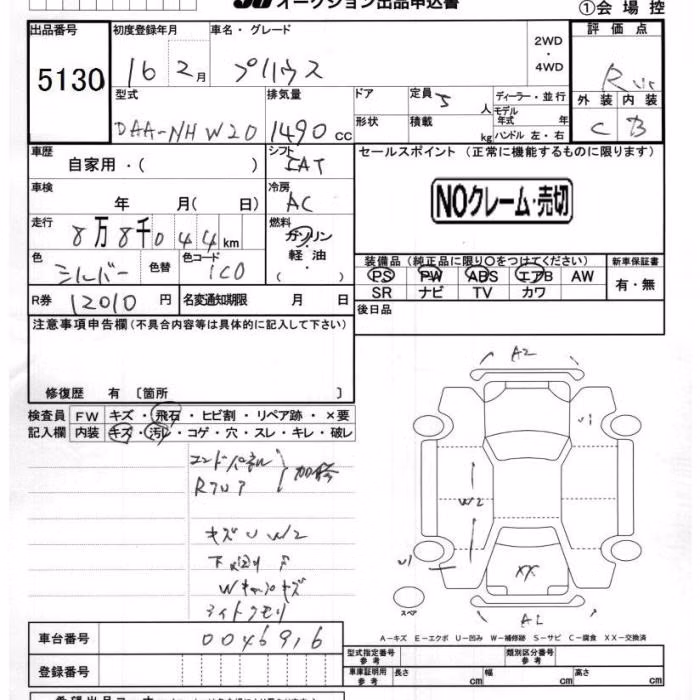 オークション出品申込書
①会場控
出品番号 5130
初度登録年月 16 2月
車名・グレード プリウス
2WD・4WD
評価点 R
外装 C 内装 B
型式 DAA-NHW20
排気量 1490cc
ドア
形状
定員 5人
積載 kg
ディーラー・並行
モデル年式 年
ハンドル 左・右
車歴 自家用・( )
シフト IAT
セールスポイント (正常に機能するものに限ります)
NOクレーム・売切
車検 年 月( 日)
冷房 AC
走行 8万8千044km
燃料 ガソリン・軽油・( )
色 シルバー 色替
色コード 1C0
装備品 (純正品に限り○をつけてください)
PS PW ABS エアB AW
SR ナビ TV カワ
新車保証書 有・無
R券 12010円
名変通知期限 月 日
後日品
注意事項申告欄(不具合内容等は具体的に記入して下さい)
修復歴 有 〔箇所 〕
検査員記入欄
FW キズ・飛石・ヒビ割・リペア跡・×要
内装 キズ・汚レ・コゲ・穴・スレ・キレ・破レ
Rフロア
キズU W2
下廻り
ライトクモリ
A2
U1
W2
U1
XX
スペア
A-キズ E-エクボ U-凹み W-補修跡 S-サビ C-腐食 XX-交換済
車台番号 0046916
登録番号
型式指定番号 参考
類別区分番号 参考
車庫証明用 参考 長さ cm 幅 cm 高さ cm